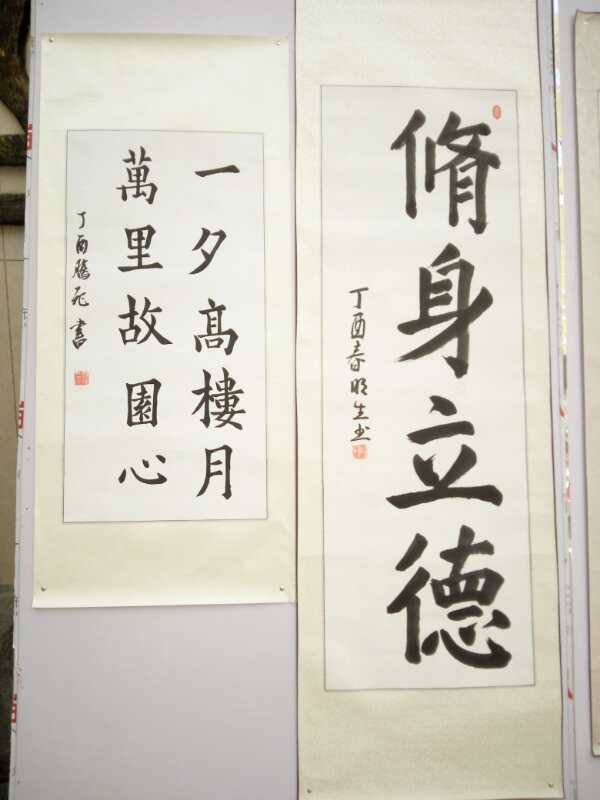 脩身立德
丁酉春明生书
一夕高樓月
萬里故園心
丁酉腾飞書